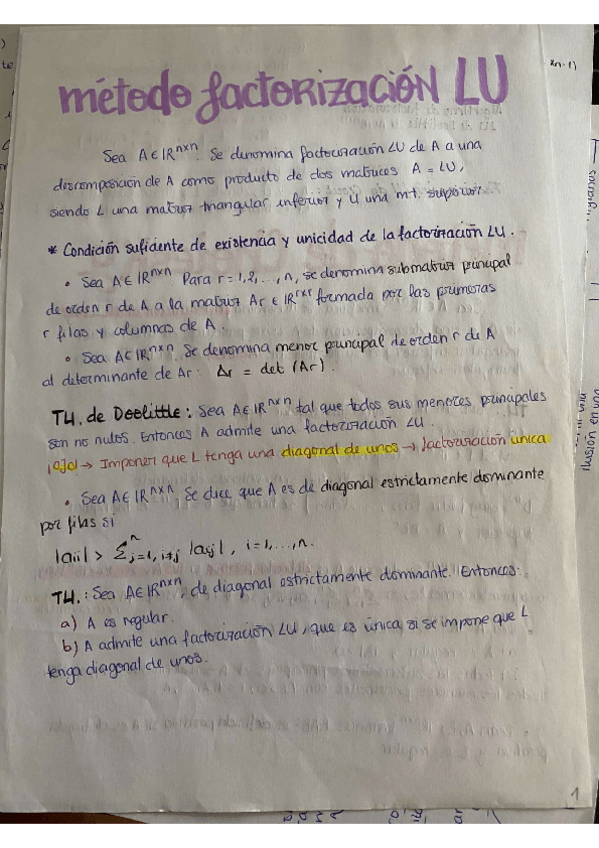 método factorización LU
Sea A∈IR^nxn. Se denomina factorización LU de A a una
descomposición de A como producto de dos matrices A = LU,
siendo L una matriz triangular inferior y U una m.t. superior.
* Condición suficiente de existencia y unicidad de la factorización LU.
• Sea A∈IR^nxn. Para r=1,2,..., n, se denomina submatriz principal
de orden r de A a la matriz Ar ∈ IR^rxr formada por las primeras
r filas y columnas de A.
• Sea A∈IR^nxn. Se denomina menor principal de orden r de A
al determinante de Ar: Δr = det (Ar).
TH. de Doolittle: Sea A∈IR^nxn tal que todos sus menores principales
son no nulos. Entonces A admite una factorización LU.
¡Ojo! → Imponer que L tenga una diagonal de unos → factorización única
• Sea A∈IR^nxn. Se dice que A es de diagonal estrictamente dominante
por filas si
|aii| > Σ^n_j=1, i≠j |aij|, i=1,...,n.
TH.: Sea A∈IR^nxn, de diagonal estrictamente dominante. Entonces:
a) A es regular.
b) A admite una factorización LU, que es única si se impone que L
tenga diagonal de unos.
1